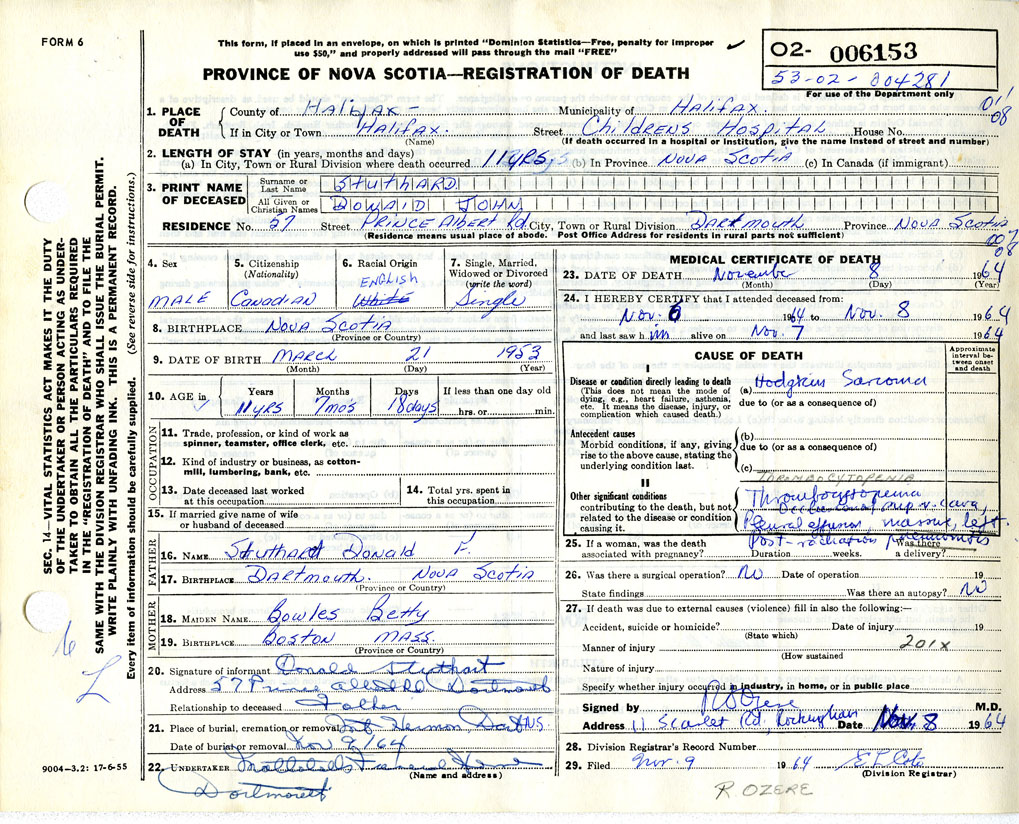 FORM 6
This form, if placed in an envelope, on which is printed "Dominion Statistics—Free, penalty for improper
use $50," and properly addressed will pass through the mail "FREE"
PROVINCE OF NOVA SCOTIA—REGISTRATION OF DEATH
02- 006153
53-02-204281
For use of the Department only
1. PLACE OF DEATH County of HALIFAX Municipality of HALIFAX.
01/
08
If in City or Town HALIFAX. Street CHILDRENS HOSPITAL House No.
(Name) (If death occurred in a hospital or institution, give the name instead of street and number)
2. LENGTH OF STAY (in years, months and days)
(a) In City, Town or Rural Division where death occurred 11 YRS (b) In Province NOVA SCOTIA (c) In Canada (if immigrant)
3. PRINT NAME OF DECEASED Surname or Last Name STUTHARD
All Given or Christian Names DONALD JOHN
RESIDENCE No. 57 Street PRINCE ALBERT Rd City, Town or Rural Division DARTMOUTH Province NOVA SCOTIA
(Residence means usual place of abode. Post Office Address for residents in rural parts not sufficient)
007
08
SEC. 14—VITAL STATISTICS ACT MAKES IT THE DUTY
OF THE UNDERTAKER OR PERSON ACTING AS UNDER-
TAKER TO OBTAIN ALL THE PARTICULARS REQUIRED
IN THE "REGISTRATION OF DEATH" AND TO FILE THE
SAME WITH THE DIVISION REGISTRAR WHO SHALL ISSUE THE BURIAL PERMIT.
WRITE PLAINLY WITH UNFADING INK. THIS IS A PERMANENT RECORD.
Every item of information should be carefully supplied. (See reverse side for instructions.)
4. Sex
MALE
5. Citizenship
(Nationality)
CANADIAN
6. Racial Origin
ENGLISH
White
7. Single, Married,
Widowed or Divorced
(write the word)
Single
8. BIRTHPLACE NOVA SCOTIA
(Province or Country)
9. DATE OF BIRTH MARCH 21 1953
(Month) (Day) (Year)
10. AGE in Years Months Days If less than one day old
11 YRS 7 mos 18 days hrs. or min.
OCCUPATION
11. Trade, profession, or kind of work as
spinner, teamster, office clerk, etc.
12. Kind of industry or business, as cotton-
mill, lumbering, bank, etc.
13. Date deceased last worked
at this occupation
14. Total yrs. spent in
this occupation
15. If married give name of wife
or husband of deceased
FATHER
16. NAME Stuthard Donald F.
17. BIRTHPLACE DARTMOUTH. NOVA SCOTIA
(Province or Country)
MOTHER
18. MAIDEN NAME Bowles Betty
19. BIRTHPLACE BOSTON MASS.
(Province or Country)
20. Signature of informant Donald Stuthart
Address 57 Prince Albert Rd Dartmouth
Relationship to deceased Father
21. Place of burial, cremation or removal Mt Hermon Dart N.S.
Date of burial or removal Nov 9/64
22. UNDERTAKER Funeral Home
(Name and address)
Dartmouth
9004-3.2: 17-6-55
MEDICAL CERTIFICATE OF DEATH
23. DATE OF DEATH November 8 1964
(Month) (Day) (Year)
24. I HEREBY CERTIFY that I attended deceased from:
Nov. 6 1964 to Nov. 8 1964
and last saw h im alive on Nov. 7 1964
CAUSE OF DEATH
Approximate interval between onset and death
I
Disease or condition directly leading to death
(This does not mean the mode of dying, e.g., heart failure, asthenia, etc. It means the disease, injury, or complication which caused death.)
(a) Hodgkins Sarcoma
due to (or as a consequence of)
Antecedent causes
Morbid conditions, if any, giving rise to the above cause, stating the underlying condition last.
(b)
due to (or as a consequence of)
(c)
II
Other significant conditions
contributing to the death, but not related to the disease or condition causing it.
THROMBOCYTOPENIA
Thrombocytopenia
sup v. cava,
Pleural effusion, massive, left
Post-radiation pneumonitis
25. If a woman, was the death
associated with pregnancy? Duration weeks. Was there a delivery?
26. Was there a surgical operation? No Date of operation 19
State findings Was there an autopsy? No
27. If death was due to external causes (violence) fill in also the following:—
Accident, suicide or homicide? Date of injury 19
(State which)
Manner of injury 201X
(How sustained
Nature of injury
Specify whether injury occurred in industry, in home, or in public place
Signed by R Ozere M.D.
Address 11 Scarlet Rd, Rockingham Date Nov. 8 1964
28. Division Registrar's Record Number
29. Filed Nov. 9 1964
(Division Registrar)
R OZERE